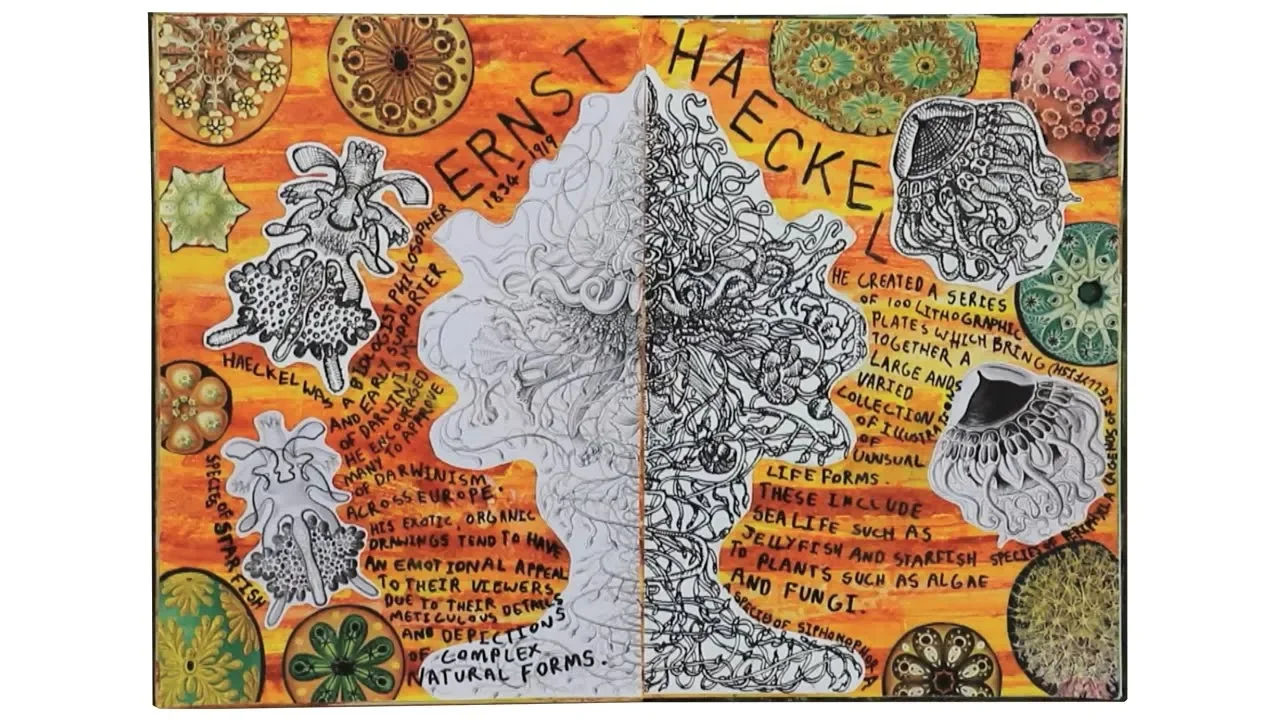 ERNST HAECKEL
1834-1919
HAECKEL WAS
A BIOLOGIST PHILOSOPHER
AND EARLY SUPPORTER
OF DARWINISM
HE ENCOURAGED
MANY TO APPROVE
OF DARWINISM
ACROSS EUROPE.
HIS EXOTIC, ORGANIC
DRAWINGS TEND TO HAVE
AN EMOTIONAL APPEAL
TO THEIR VIEWERS
DUE TO THEIR DETAILS
METICULOUS
AND DEPICTIONS
OF COMPLEX
NATURAL FORMS.
SPECIES OF STARFISH
HE CREATED A SERIES
OF 100 LITHOGRAPHIC
PLATES WHICH BRING
TOGETHER A
LARGE AND
VARIED
COLLECTION
OF ILLUSTRATIONS
OF
UNUSUAL
LIFE FORMS.
THESE INCLUDE
SEA LIFE SUCH AS
JELLYFISH AND STARFISH
TO PLANTS SUCH AS ALGAE
AND FUNGI.
SPECIES OF PERIPHYLLA (A GENUS OF JELLYFISH)
A SPECIES OF SIPHONOPHORA